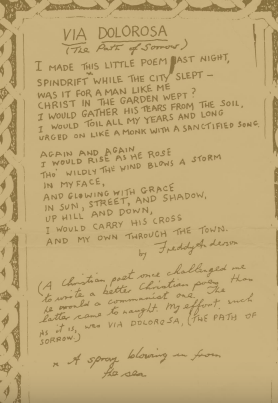 VIA DOLOROSA
(The Path of Sorrow)
I MADE THIS LITTLE POEM LAST NIGHT,
SPINDRIFT * WHILE THE CITY SLEPT –
WAS IT FOR A MAN LIKE ME
CHRIST IN THE GARDEN WEPT?
I WOULD GATHER HIS TEARS FROM THE SOIL,
I WOULD TOIL ALL MY YEARS AND LONG
URGED ON LIKE A MONK WITH A SANCTIFIED SONG.
AGAIN AND AGAIN
I WOULD RISE AS HE ROSE
THO' WILDLY THE WIND BLOWS A STORM
IN MY FACE,
AND GLOWING WITH GRACE
IN SUN, STREET, AND SHADOW,
UP HILL AND DOWN,
I WOULD CARRY HIS CROSS
AND MY OWN THROUGH THE TOWN.
by Freddy
(A Christian poet once challenged me
to write a better Christian poem than
he would a communist one. The
latter came to naught. My effort, such
AS IT IS, WAS VIA DOLOROSA, (THE PATH OF
SORROW.)
* A spray blowing in from
the sea